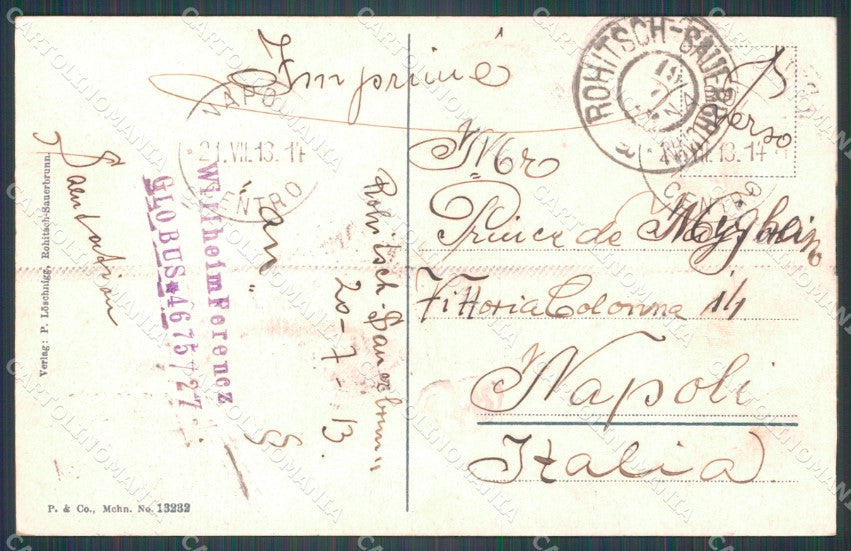 Imprimé
ROHITSCH-SAUERBRUNN
verso
NAPOLI
21.VII.13.14
CENTRO
21.VII.13.14
CENTRO
Mr
Prince de
Vittoria Colonna 14
Napoli
Italia
Rohitsch-Sauerbrunn
20-7-13.
Wilhelm Ferencz
GLOBUS * 4675/27
Verlag: P. Löschnigg, Rohitsch-Sauerbrunn.
P. & Co., Mchn. No. 13232
CARTOLINOMANIA